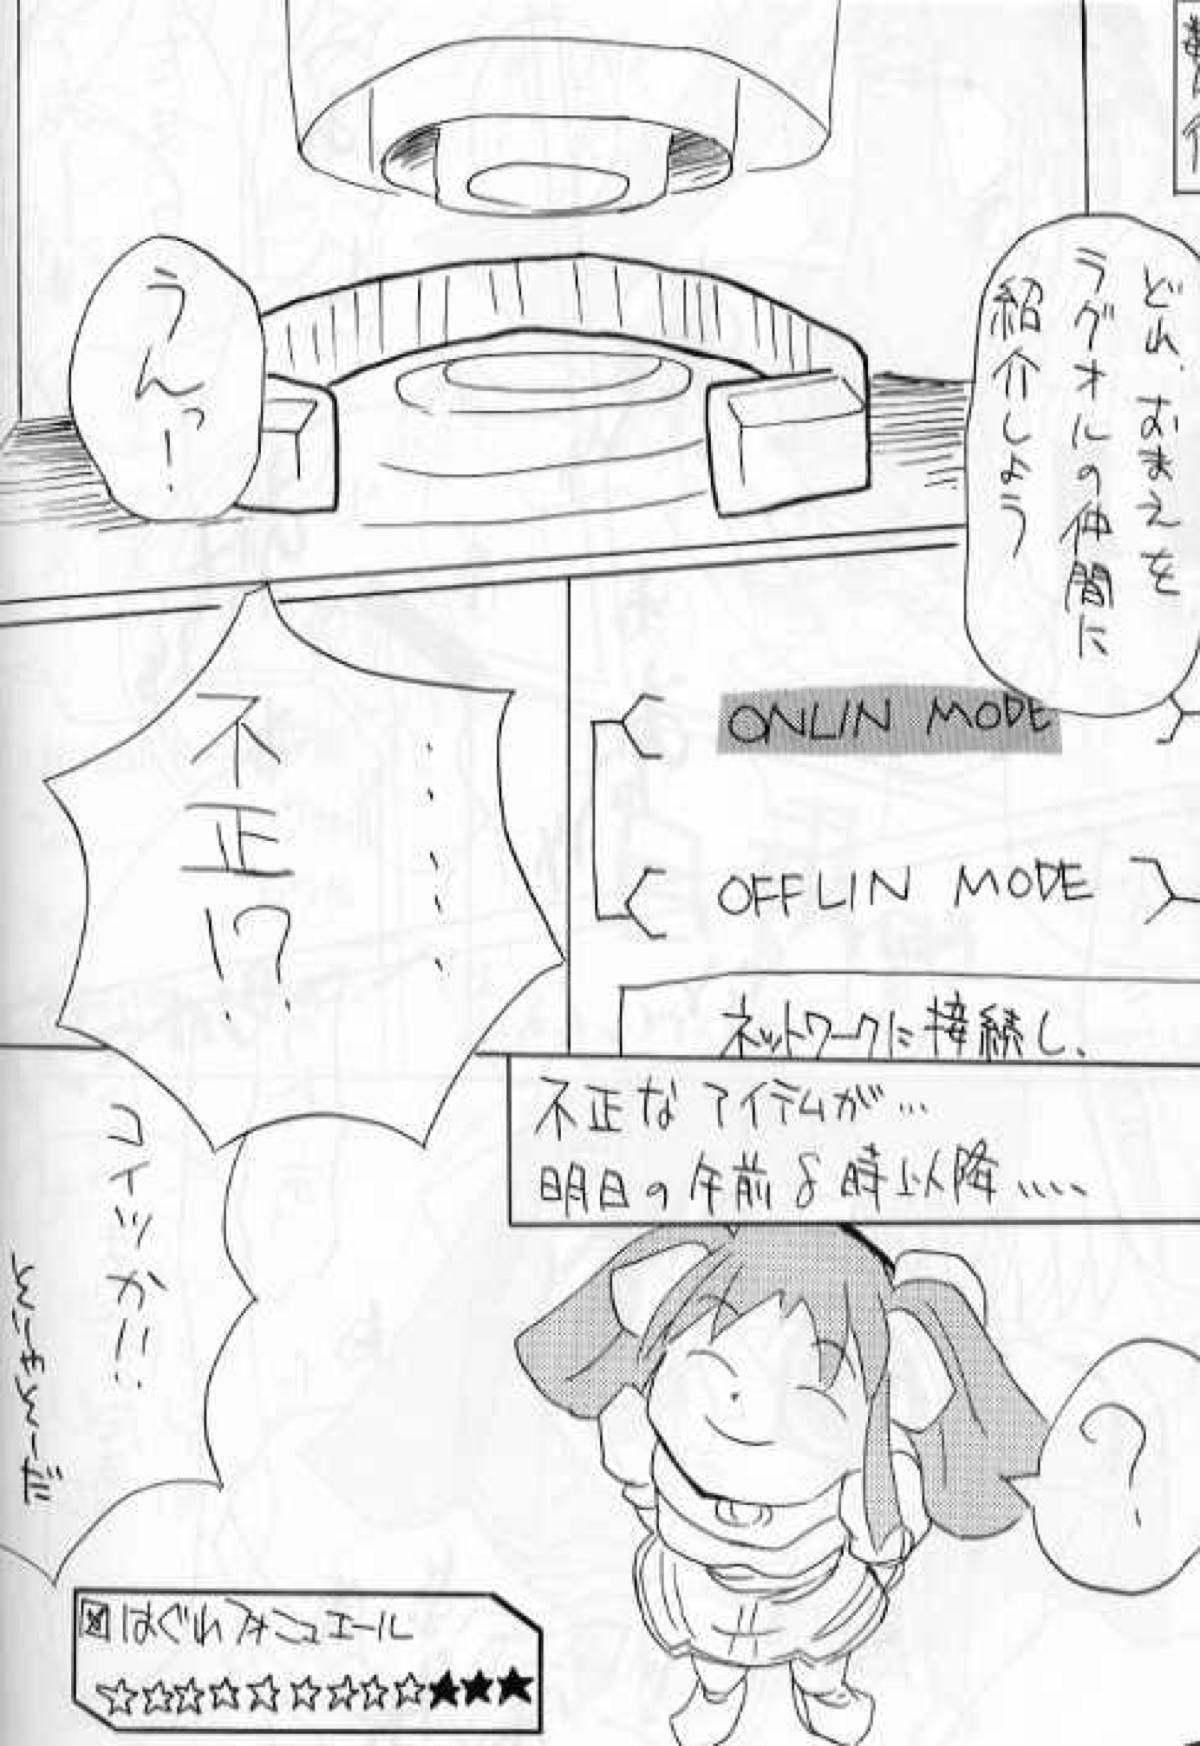 どれ、おまえを
ラグオルの仲間に
紹介しよう
うんっー!
ONLIN MODE
OFFLIN MODE
ネットワークに接続し、
不正なアイテムが…
明日の午前8時以降、、、、
・・・・・
不正!?
コイツかい!!
?
はぐれフォニュエール
☆☆☆☆☆☆☆☆☆★★★